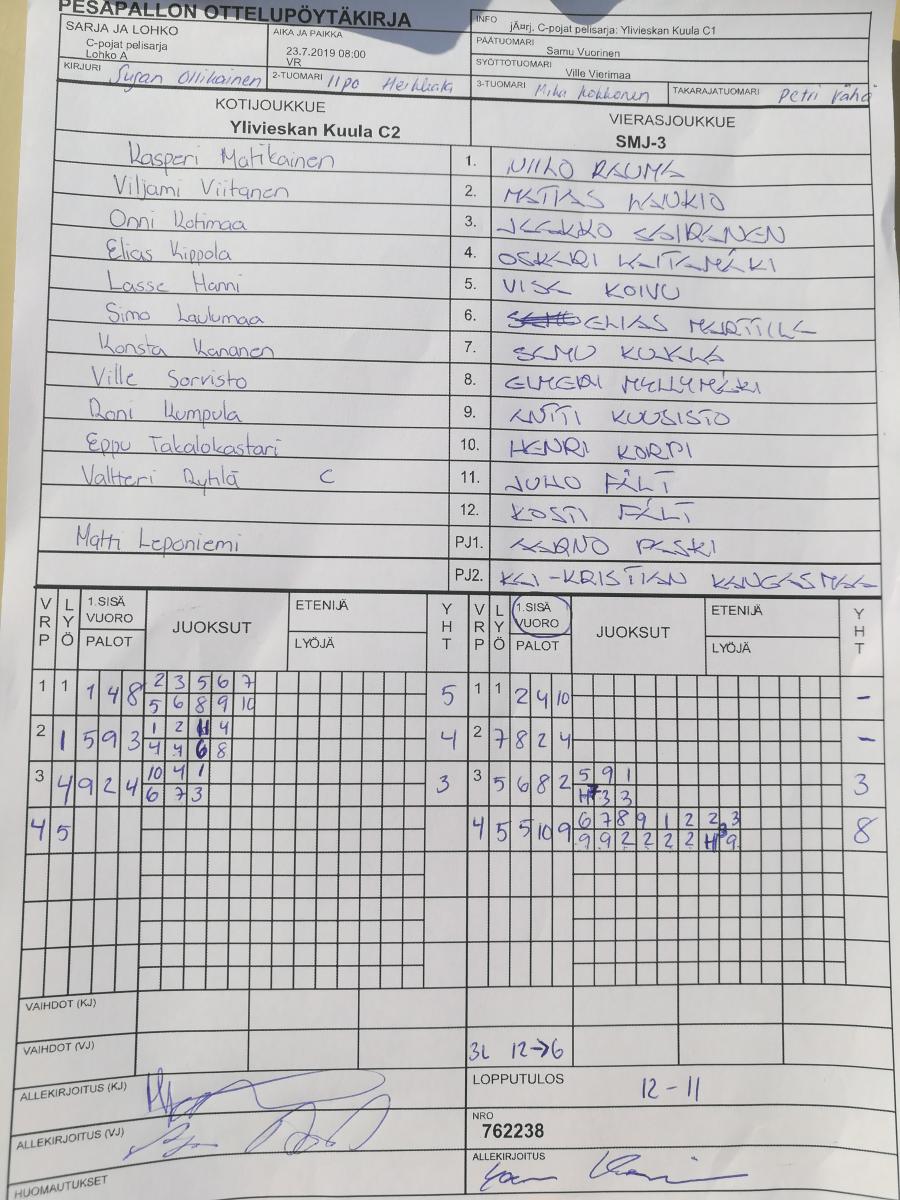 PESÄPALLON OTTELUPÖYTÄKIRJA
INFO jÃ¤rj. C-pojat pelisarja: Ylivieskan Kuula C1
SARJA JA LOHKO
C-pojat pelisarja
Lohko A
AIKA JA PAIKKA
23.7.2019 08:00
VR
PÄÄTUOMARI Samu Vuorinen
SYÖTTÖTUOMARI Ville Vierimaa
KIRJURI Susan Ollikainen
2-TUOMARI Ilpo
3-TUOMARI Mika Kokkonen
TAKARAJATUOMARI Petri Vähä
KOTIJOUKKUE
Ylivieskan Kuula C2
VIERASJOUKKUE
SMJ-3
Kasperi Matikainen 1. NIILO RAUMA
Viljami Viitanen 2. MATIAS HAUKIO
Onni Kotimaa 3. JAAKKO SAIRANEN
Elias Kippola 4. OSKARI KAITAMÄKI
Lasse Hanni 5. VISA KOIVU
Simo Laulumaa 6. ELIAS MARTTILA
Konsta Kananen 7. SAMU KUKKA
Ville Sorvisto 8. ELMERI MYLLYMÄKI
Roni Kumpula 9. ANTTI KUUSISTO
Eppu Takalokastari 10. HENRI KORPI
Valtteri Ryhlä C 11. JUHO FÄLT
12. KOSTI FÄLT
Matti Leponiemi PJ1. AARNO PASKI
PJ2. KAI-KRISTIAN KANGASMAA
VRP LYÖ 1.SISÄ VUORO PALOT JUOKSUT ETENIJÄ LYÖJÄ YHT VRP LYÖ 1.SISÄ VUORO PALOT JUOKSUT ETENIJÄ LYÖJÄ YHT
1 1 1 4 8 2 3 5 6 7 5 1 1 2 4 10 –
5 6 8 9 10
2 1 5 9 3 1 2 4 4 2 7 8 2 4 –
4 4 6 8
3 4 9 2 4 10 4 1 3 3 5 6 8 2 5 9 1 3
6 7 3 H 3 3
4 5 4 5 5 10 9 6 7 8 9 1 2 2 3 8
9 9 2 2 2 2 H 9
VAIHDOT (KJ)
VAIHDOT (VJ) 3L 12→6
ALLEKIRJOITUS (KJ)
LOPPUTULOS 12-11
ALLEKIRJOITUS (VJ)
NRO
762238
ALLEKIRJOITUS
HUOMAUTUKSET